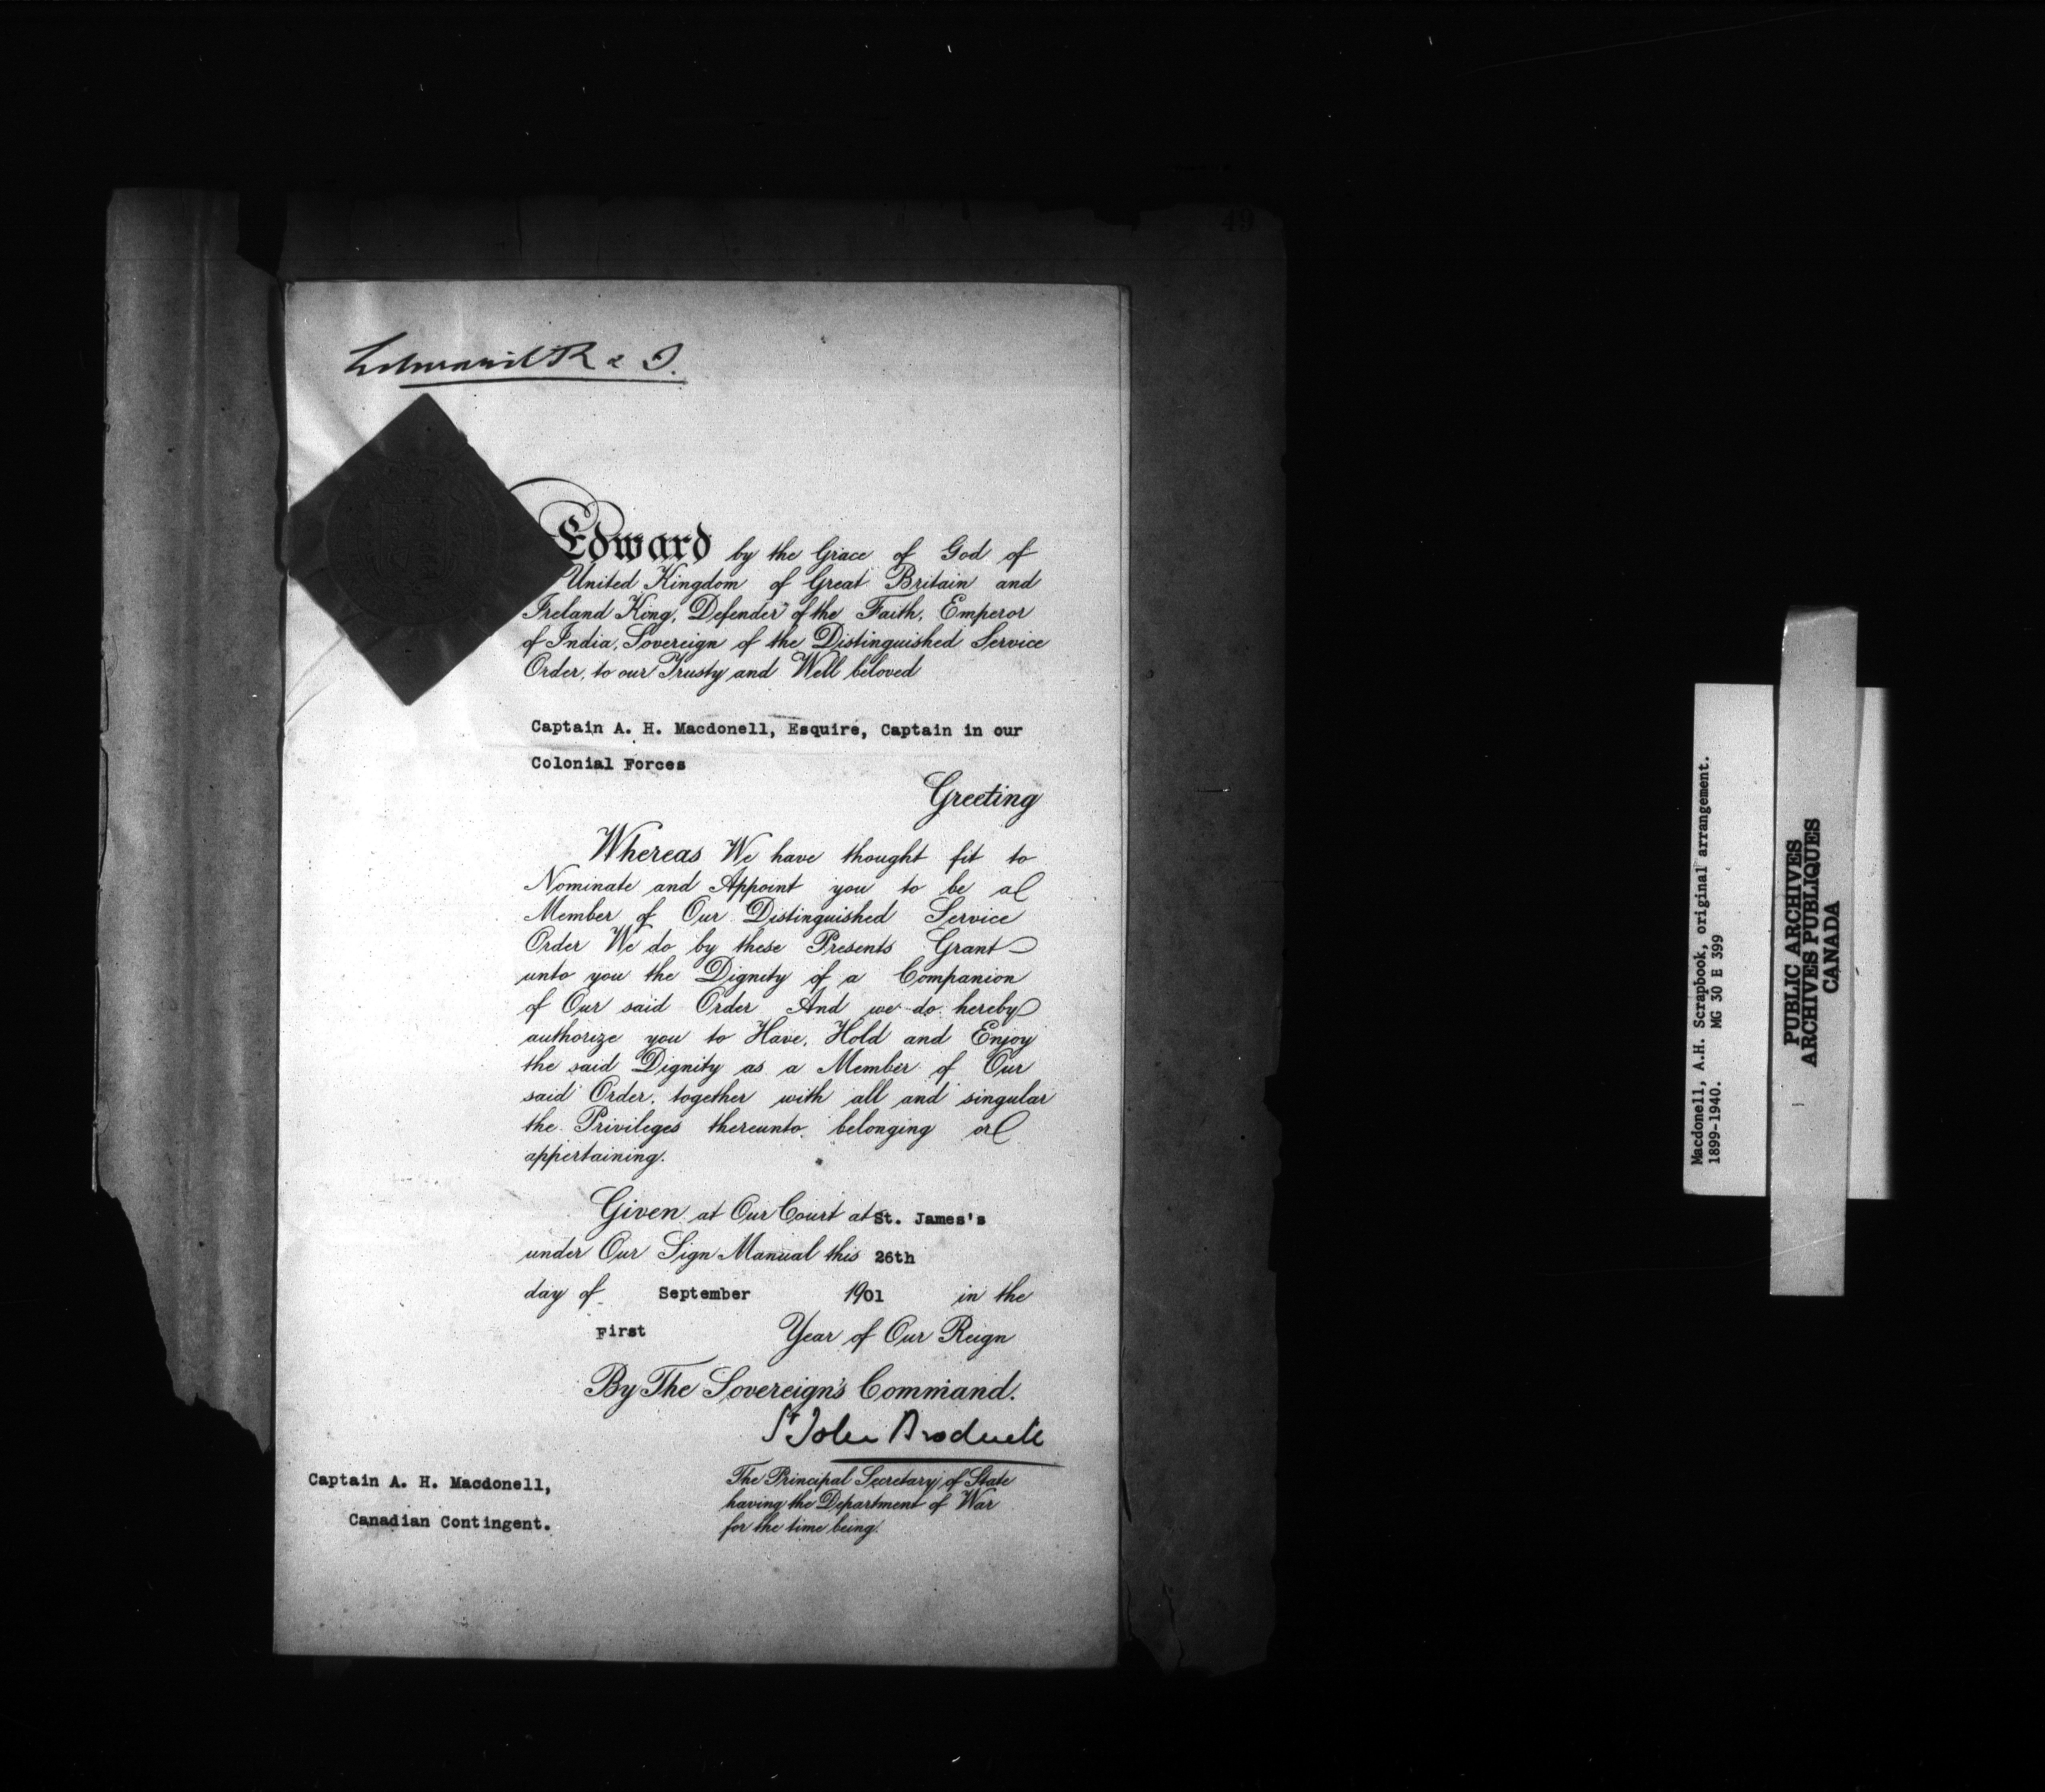 49
Edward R & I.
Edward by the Grace of God of
United Kingdom of Great Britain and
Ireland King, Defender of the Faith, Emperor
of India, Sovereign of the Distinguished Service
Order, to our Trusty and Well beloved
Captain A. H. Macdonell, Esquire, Captain in our
Colonial Forces
Greeting
Whereas We have thought fit to
Nominate and Appoint you to be a
Member of Our Distinguished Service
Order We do by these Presents Grant
unto you the Dignity of a Companion
of Our said Order And we do hereby
authorize you to Have, Hold and Enjoy
the said Dignity as a Member of Our
said Order, together with all and singular
the Privileges thereunto belonging or
appertaining.
Given at Our Court at St. James's
under Our Sign Manual this 26th
day of September 1901 in the
First Year of Our Reign
By The Sovereign's Command.
St John Brodrick
The Principal Secretary of State
having the Department of War
for the time being.
Captain A. H. Macdonell,
Canadian Contingent.
Macdonell, A.H. Scrapbook, original arrangement.
1899-1940. MG 30 E 399
PUBLIC ARCHIVES
ARCHIVES PUBLIQUES
CANADA